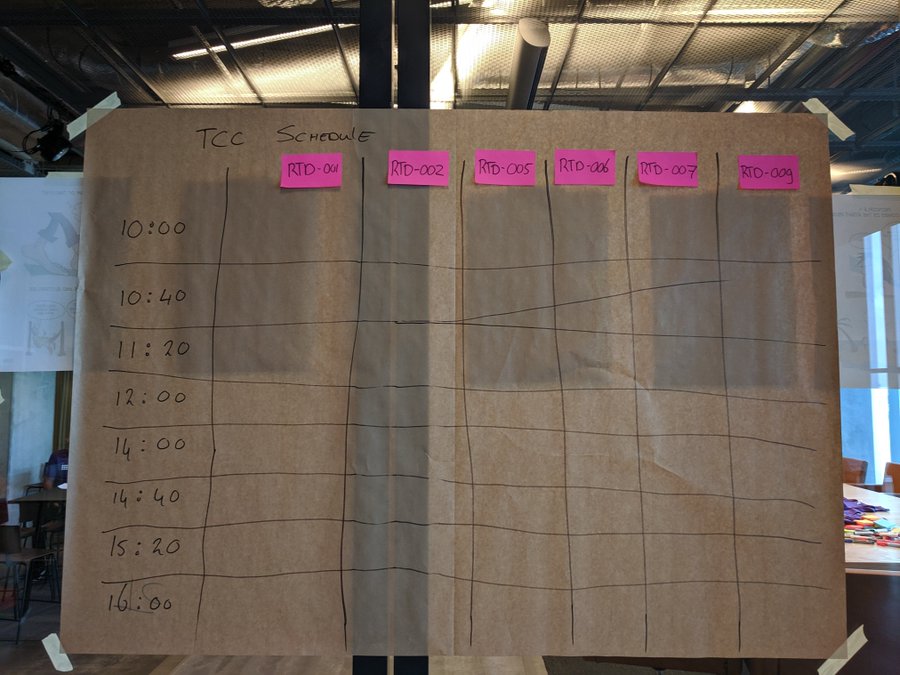 TCC SCHEDULE
RTD-001 RTD-002 RTD-005 RTD-006 RTD-007 RTD-009
10:00
10:40
11:20
12:00
14:00
14:40
15:20
16:00